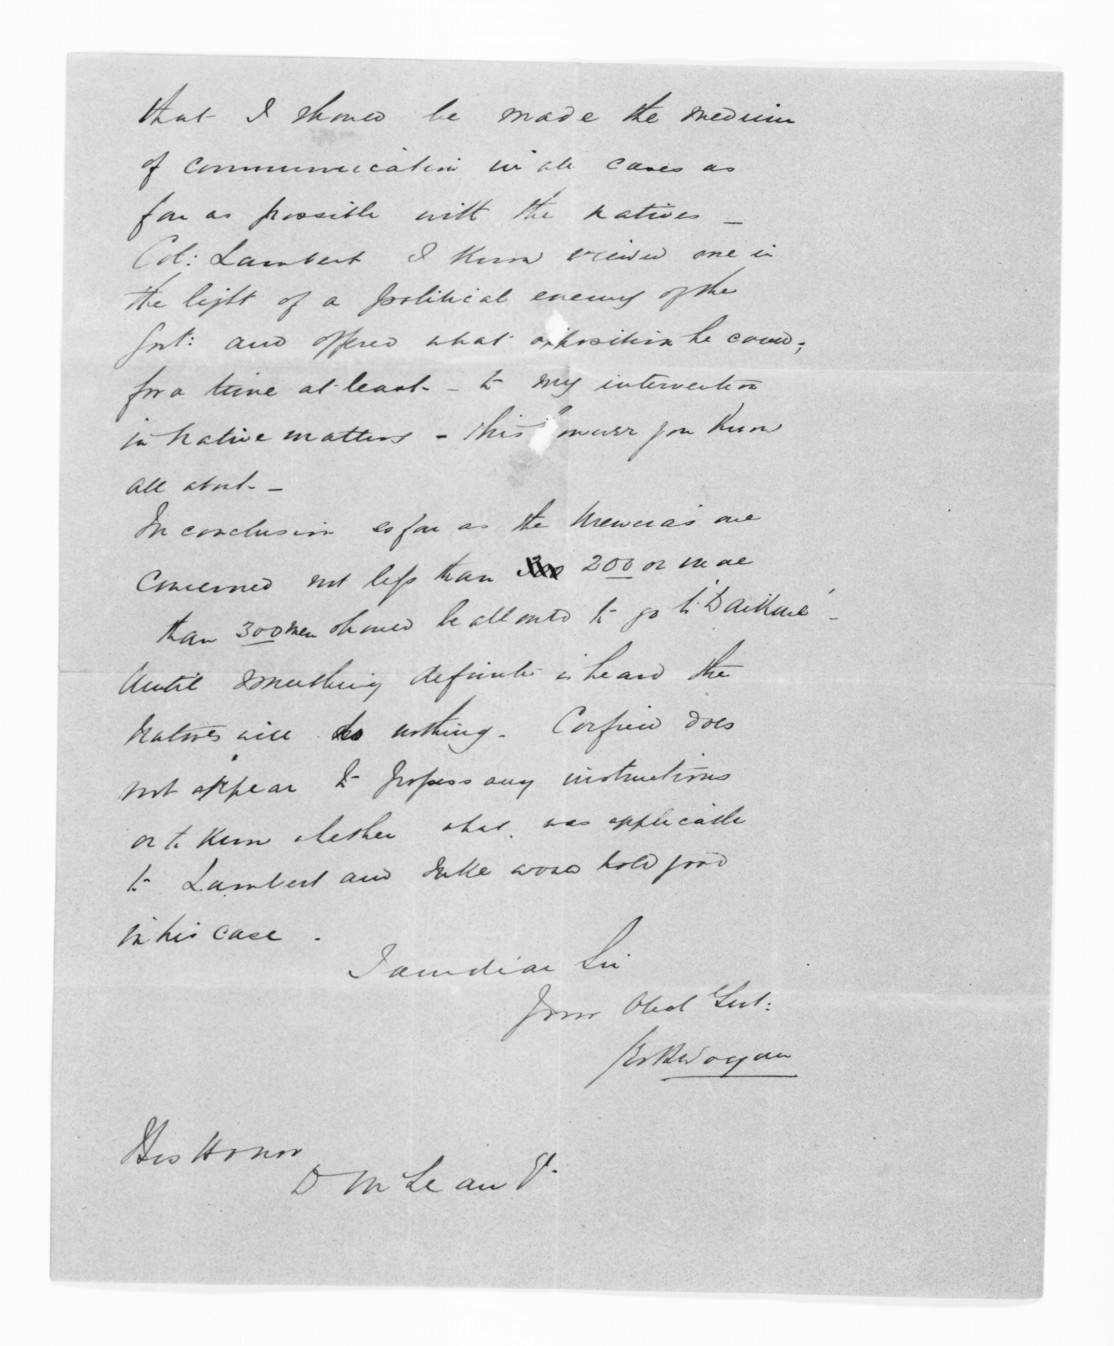 that I should be made the medium
of communication in all cases as
far as possible with the natives _
Col: Lambert I know viewed me in
the light of a political enemy of the
Govt: and offered what opposition he could;
for a time at least - to my intervention
in native matters - this however you know
all about -
In conclusion so far as the Urewera's are
concerned not less than 200 or more
than 300 men should be allowed to go to
Until something definite is heard the
natives will do nothing. Corfield does
not appear to possess any instructions
or to know whether what was applicable
to Lambert and Tuke would hold good
in his case.
I am dear Sir
Your Obed Sert:
His Honor
D McLean